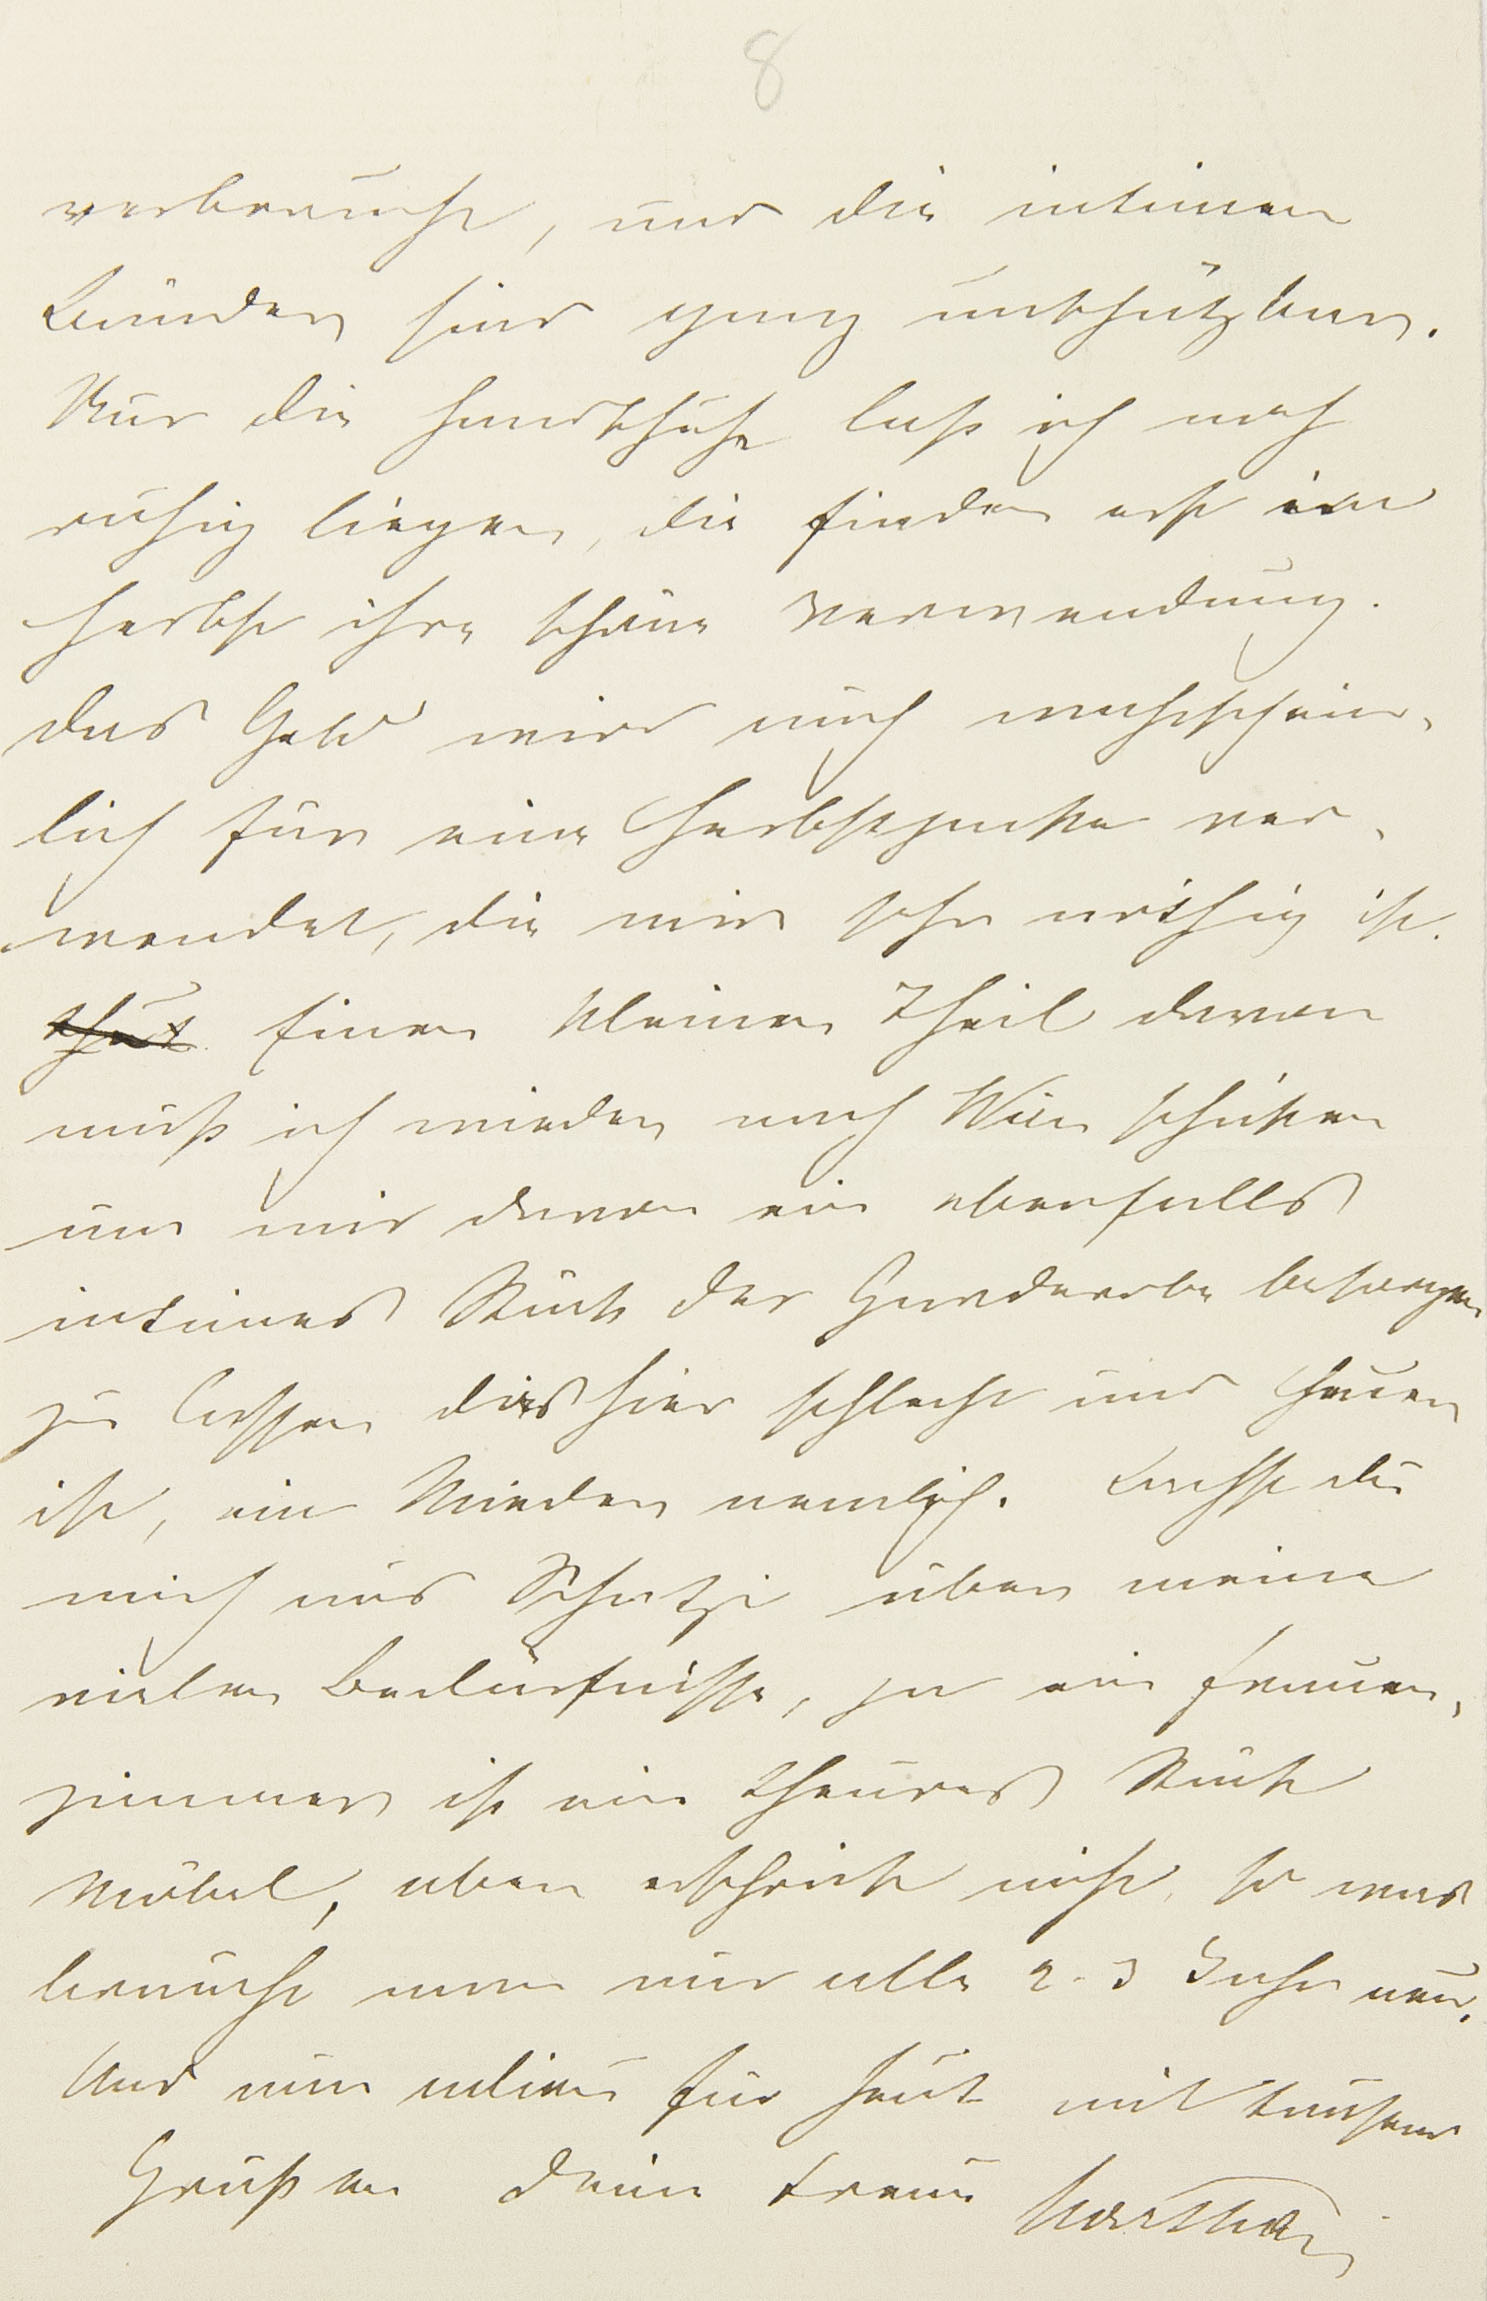 8
verbraucht, und die intimen
Bänder sind ganz unschätzbar.
Nur die Handschuhe laß ich noch
ruhig liegen, die finden erst im
Herbst ihre schöne Verwendung.
das Geld wird auch wahrschein-
lich für eine Herbstjacke ver-
wendet, die mir sehr nöthig ist.
Einen kleinen Theil davon
muß ich wieder nach Wien schicken
um mir davon ein ebenfalls
intimes Stück der Garderobe besorgen
zu lassen das hier schlecht und theuer
ist, ein Mieder nemlich. Lachst du
mich aus Schatzi über meine
vielen Bedürfnisse, ja ein Frauen-
zimmer ist ein theures Stück
Möbel, aber erschrick nicht, so was
braucht man nur alle 2-3 Jahr neu.
Und nun adieu für heut mit tausend
Grüßen deine treue